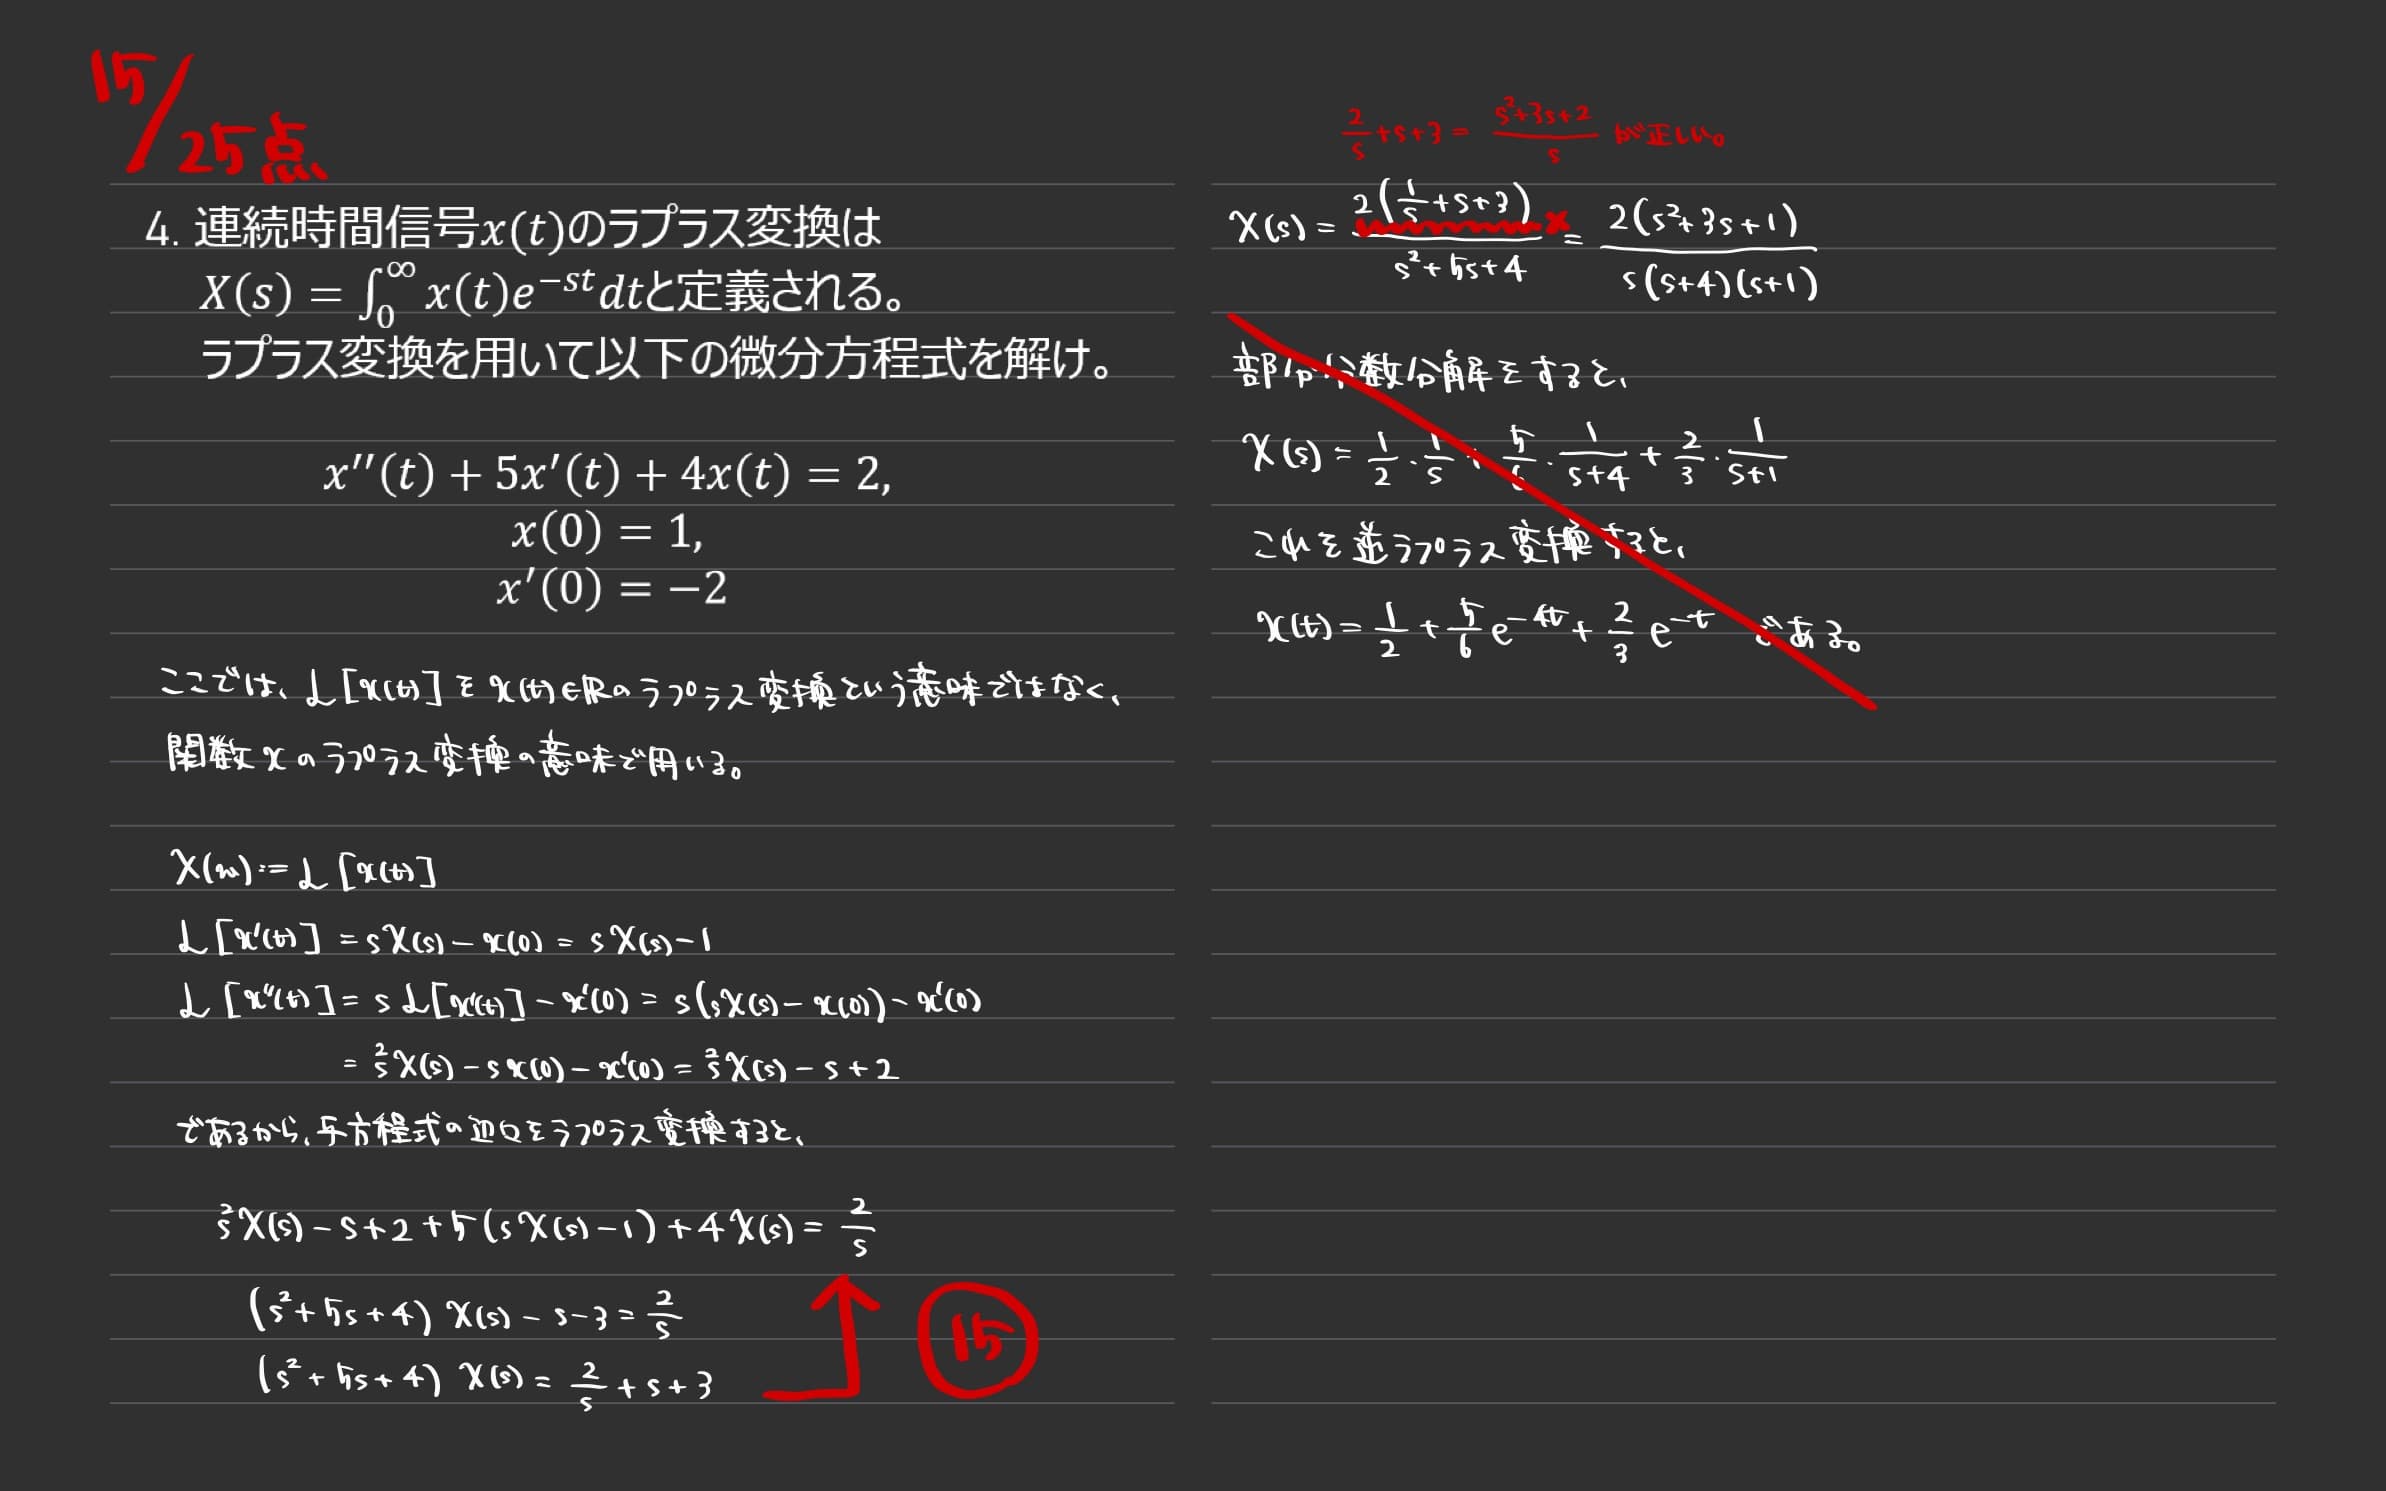 15/25点
4. 連続時間信号x(t)のラプラス変換は
X(s) = ∫₀^∞ x(t)e^{−st}dtと定義される。
ラプラス変換を用いて以下の微分方程式を解け。
x′′(t) + 5x′(t) + 4x(t) = 2,
x(0) = 1,
x′(0) = −2
ここでは、ℒ[x(t)]をx(t)∈ℝのラプラス変換という意味ではなく、
関数xのラプラス変換の意味で用いる。
X(s) := ℒ[x(t)]
ℒ[x'(t)] = sX(s) − x(0) = sX(s) − 1
ℒ[x''(t)] = sℒ[x'(t)] − x'(0) = s(sX(s) − x(0)) − x'(0)
= s²X(s) − sx(0) − x'(0) = s²X(s) − s + 2
であるから、与方程式の辺々をラプラス変換すると、
s²X(s) − s + 2 + 5(sX(s) − 1) + 4X(s) = 2/s
(s² + 5s + 4) X(s) − s − 3 = 2/s
(s² + 5s + 4) X(s) = 2/s + s + 3
15
2/s + s + 3 = (s² + 3s + 2)/s が正しい。
X(s) = 2(1/s + s + 3)/(s² + 5s + 4) = 2(s² + 3s + 1)/(s(s+4)(s+1))
部分分数分解をすると、
X(s) = 1/2 · 1/s + 5/6 · 1/(s+4) + 2/3 · 1/(s+1)
これを逆ラプラス変換すると、
x(t) = 1/2 + 5/6 e^{−4t} + 2/3 e^{−t} である。